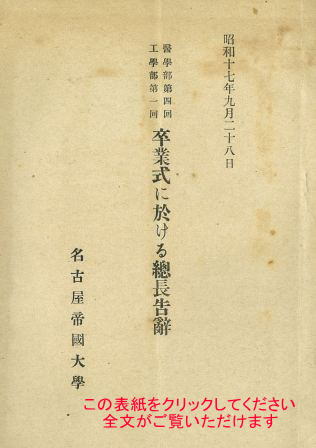 昭和十七年九月二十八日
醫學部第四回
工學部第一回
卒業式に於ける總長告辭
名古屋帝國大學
この表紙をクリックしてください
全文がご覧いただけます